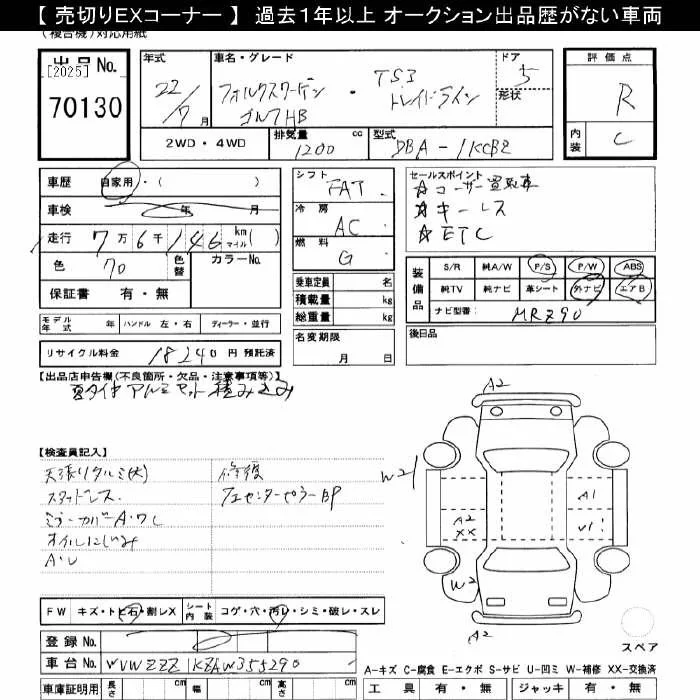 【 売切りEXコーナー 】 過去1年以上 オークション出品歴がない車両
(複合機)対応用紙
出品 No.
[2025]
70130
年式
22/7月
車名・グレード
フォルクスワーゲン
ゴルフHB
・ TSI
トレンドライン
ドア
5
形状
評価点
R
内装
C
2WD・4WD
排気量 1200 cc
型式 DBA-1KCBZ
車歴 自家用・( )
車検 年 月
走行 7万6千146 km マイル ( )
色 70 色替 カラーNo.
保証書 有・無
シフト FAT
冷房 AC
燃料 G
乗車定員 名
積載量 kg
総重量 kg
セールスポイント
☆ユーザー買取車
☆キーレス
☆ETC
装備品
S/R 純A/W P/S P/W ABS
純TV 純ナビ 革シート 外ナビ エアB
ナビ型番: MRZ90
モデル年式 年 ハンドル 左・右 ディーラー・並行
名変期限
月 日
後日品
リサイクル料金 18240 円 預託済
【出品店申告欄(不良箇所・欠品・注意事項等)】
夏タイヤアルミセット積み込み
【検査員記入】
天張りタルミ(大)
スタッドレス
ミラーカバーA・ワレ
オイルにじみ
A・U
修復
フェ センターピラーBP
A2
W2
A2
XX
A1
U1
W2
A2
スペア
FW キズ・トビ石・割レX シート内装 コゲ・穴・汚レ・シミ・破レ・スレ
登録 No.
車台 No. WVWZZZ1KZAW355290
車庫証明用 長さ cm 幅 cm 高さ cm
A-キズ C-腐食 E-エクボ S-サビ U-凹ミ W-補修 XX-交換済
工具 有・無 ジャッキ 有・無